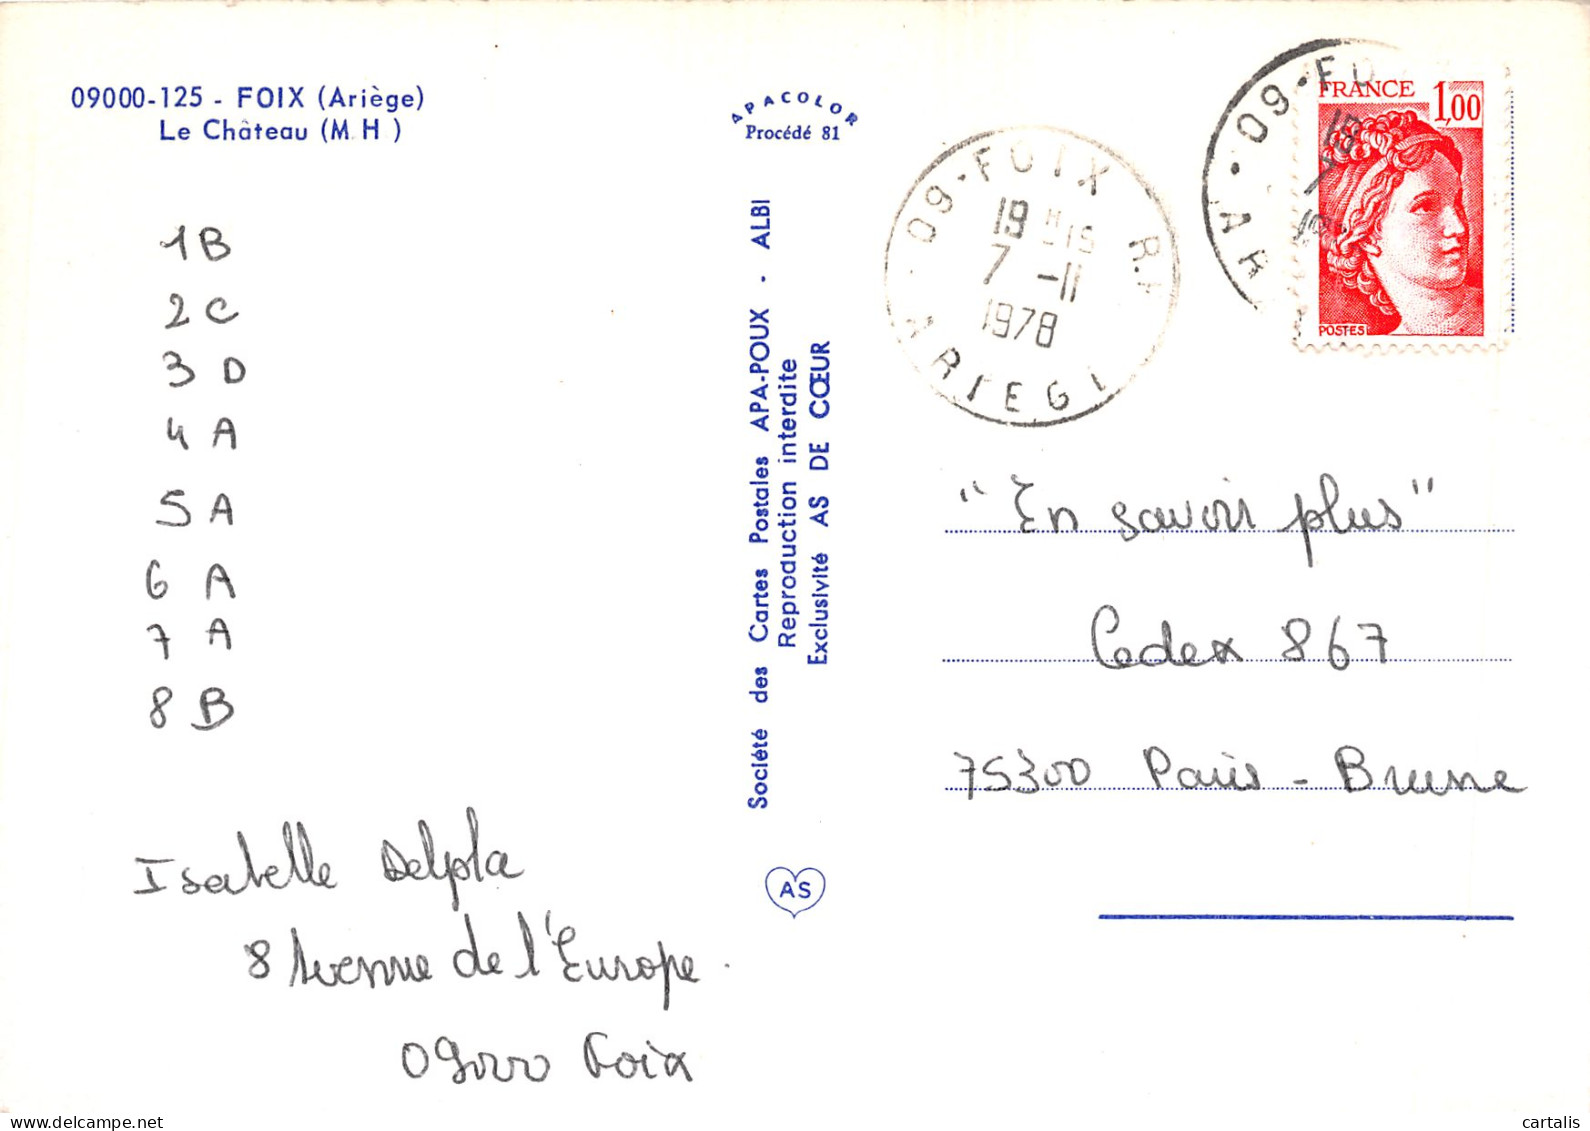 09000-125 - FOIX (Ariège)
Le Château (M. H.)
1B
2C
3 D
4 A
5 A
6 A
7 A
8 B
Isabelle Delpla
8 Avenue de l'Europe.
09000 Foix
APACOLOR
Procédé 81
Société des Cartes Postales APA-POUX - ALBI
Reproduction interdite
Exclusivité AS DE CŒUR
AS
09-FOIX R.P
19 H 15
7 -11
1978
ARIEGE
09-FO
AR
FRANCE 1,00
POSTES
"En savoir plus"
Cedex 867
75300 Paris - Brune
cartalis